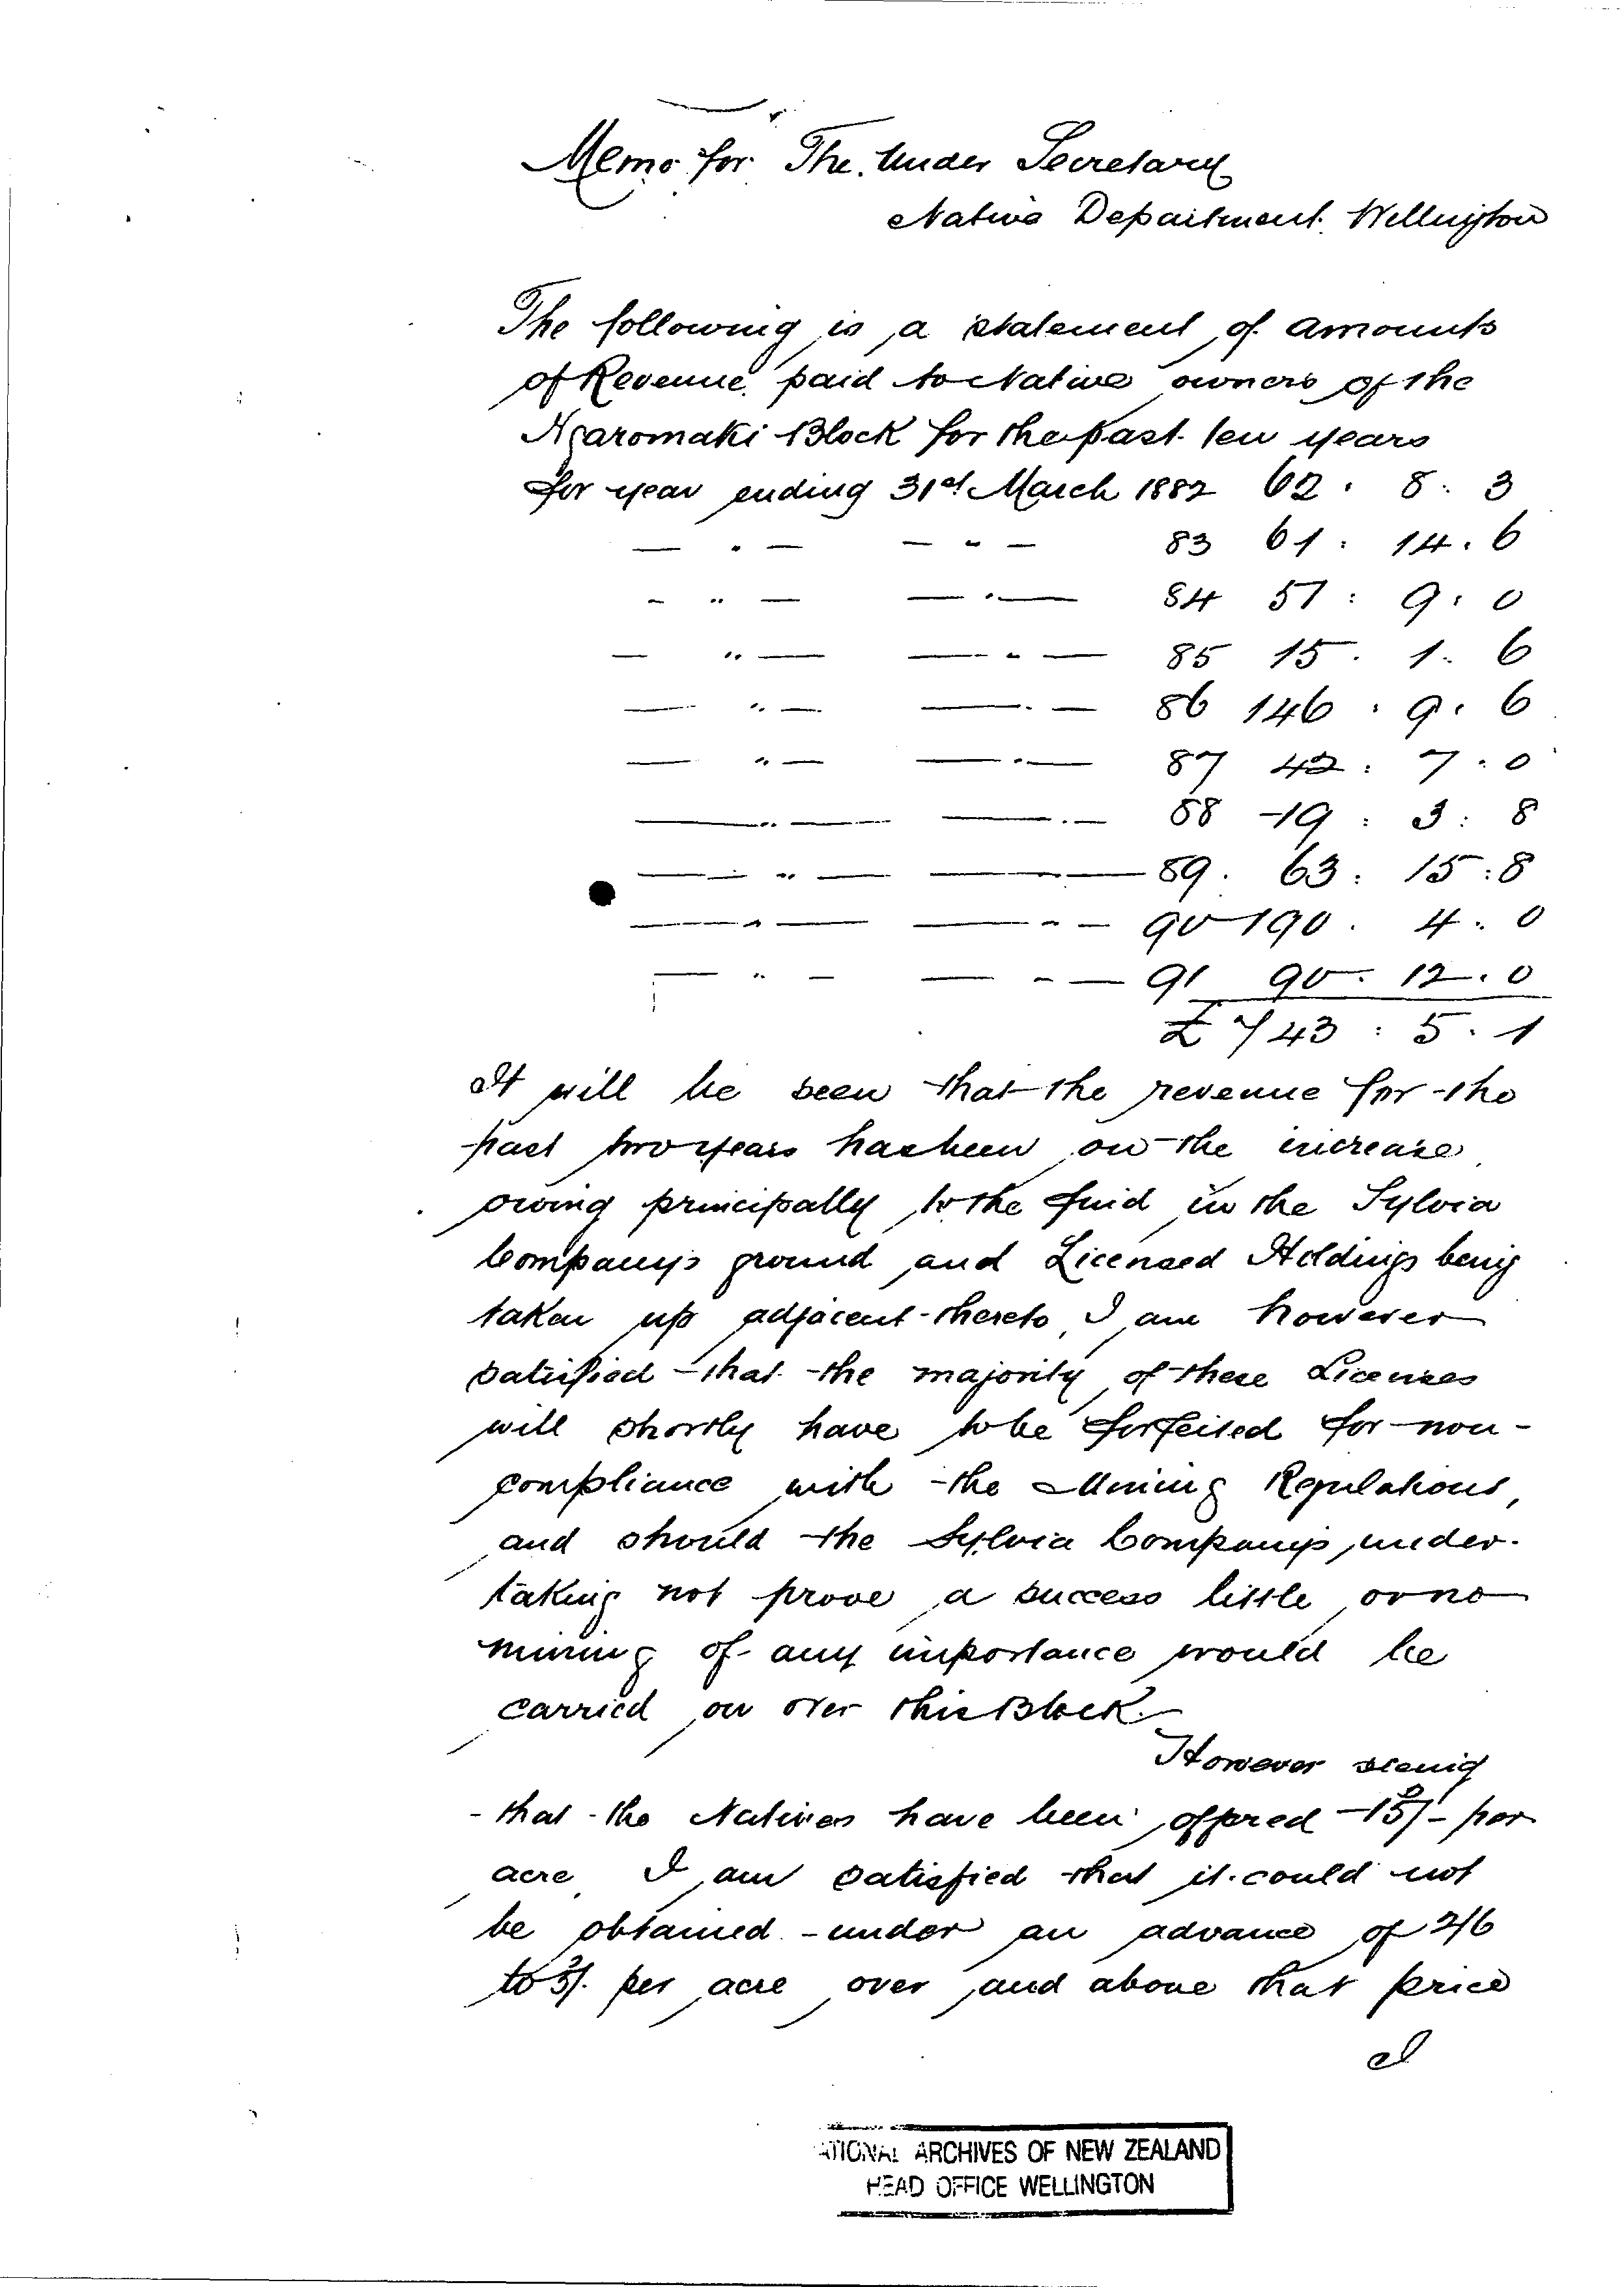 Memo for The Under Secretary
Native Department. Wellington
The following is a statement of amounts
of Revenue paid to Native owners of the
Ngaromaki Block for the past ten years
for year ending 31st March 1882 62 . 8 . 3
— " — — " — 83 61 : 14 . 6
— " — — " — 84 51 : 9 : 0
— " — — " — 85 15 . 1 . 6
— " — — " — 86 146 : 9 . 6
— " — — " — 87 42 : 7 . 0
— " — — " — 88 19 : 3 : 8
— " — — " — 89 . 63 : 15 : 8
— " — — " — 90 190 . 4 . 0
— " — — " — 91 90 . 12 . 0
£ 743 : 5 . 1
It will be seen that the revenue for the
past two years has been on the increase
owing principally to the find in the Sylvia
Company's ground and Licensed Holdings being
taken up adjacent thereto, I am however
satisfied that the majority of these Licenses
will shortly have to be forfeited for non-
compliance with the Mining Regulations,
and should the Sylvia Company's under-
taking not prove a success little or no
mining of any importance would be
carried on over this Block.
However seeing
that the Natives have been offered 15/- per
acre, I am satisfied that it could not
be obtained under an advance of 2/6
to 5/. per acre over and above that price
I
NATIONAL ARCHIVES OF NEW ZEALAND
HEAD OFFICE WELLINGTON